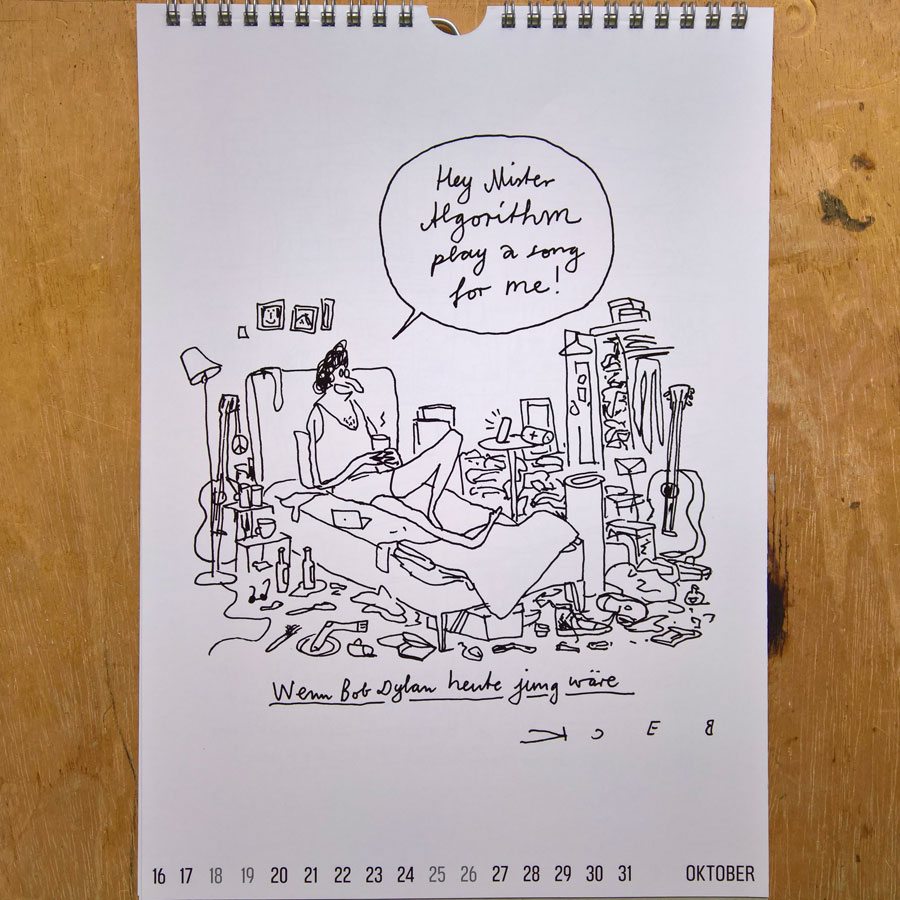 Hey Mister
Algorithm
play a song
for me!
Wenn Bob Dylan heute jung wäre
BECK
16 17 18 19 20 21 22 23 24 25 26 27 28 29 30 31 OKTOBER